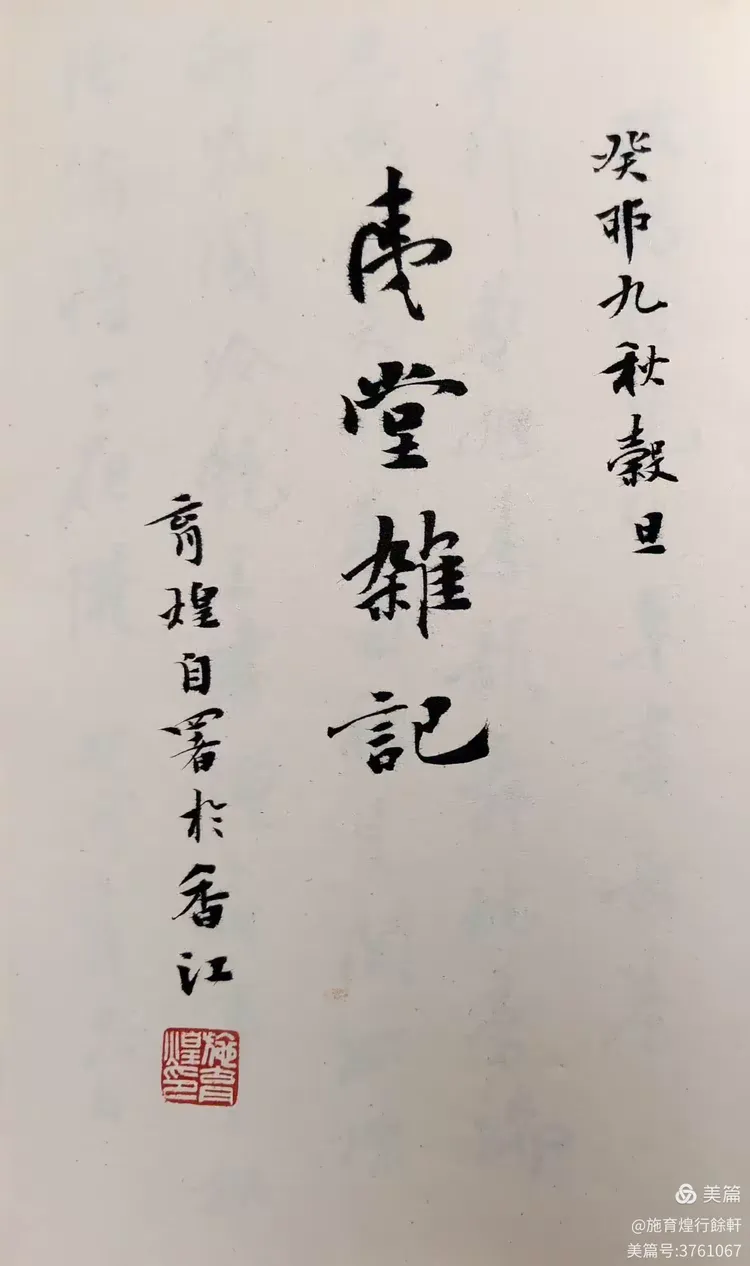 癸卯九秋穀旦
堂雜記
育煌自署於香江
施育煌印
美篇
@施育煌行餘軒
美篇号:3761067